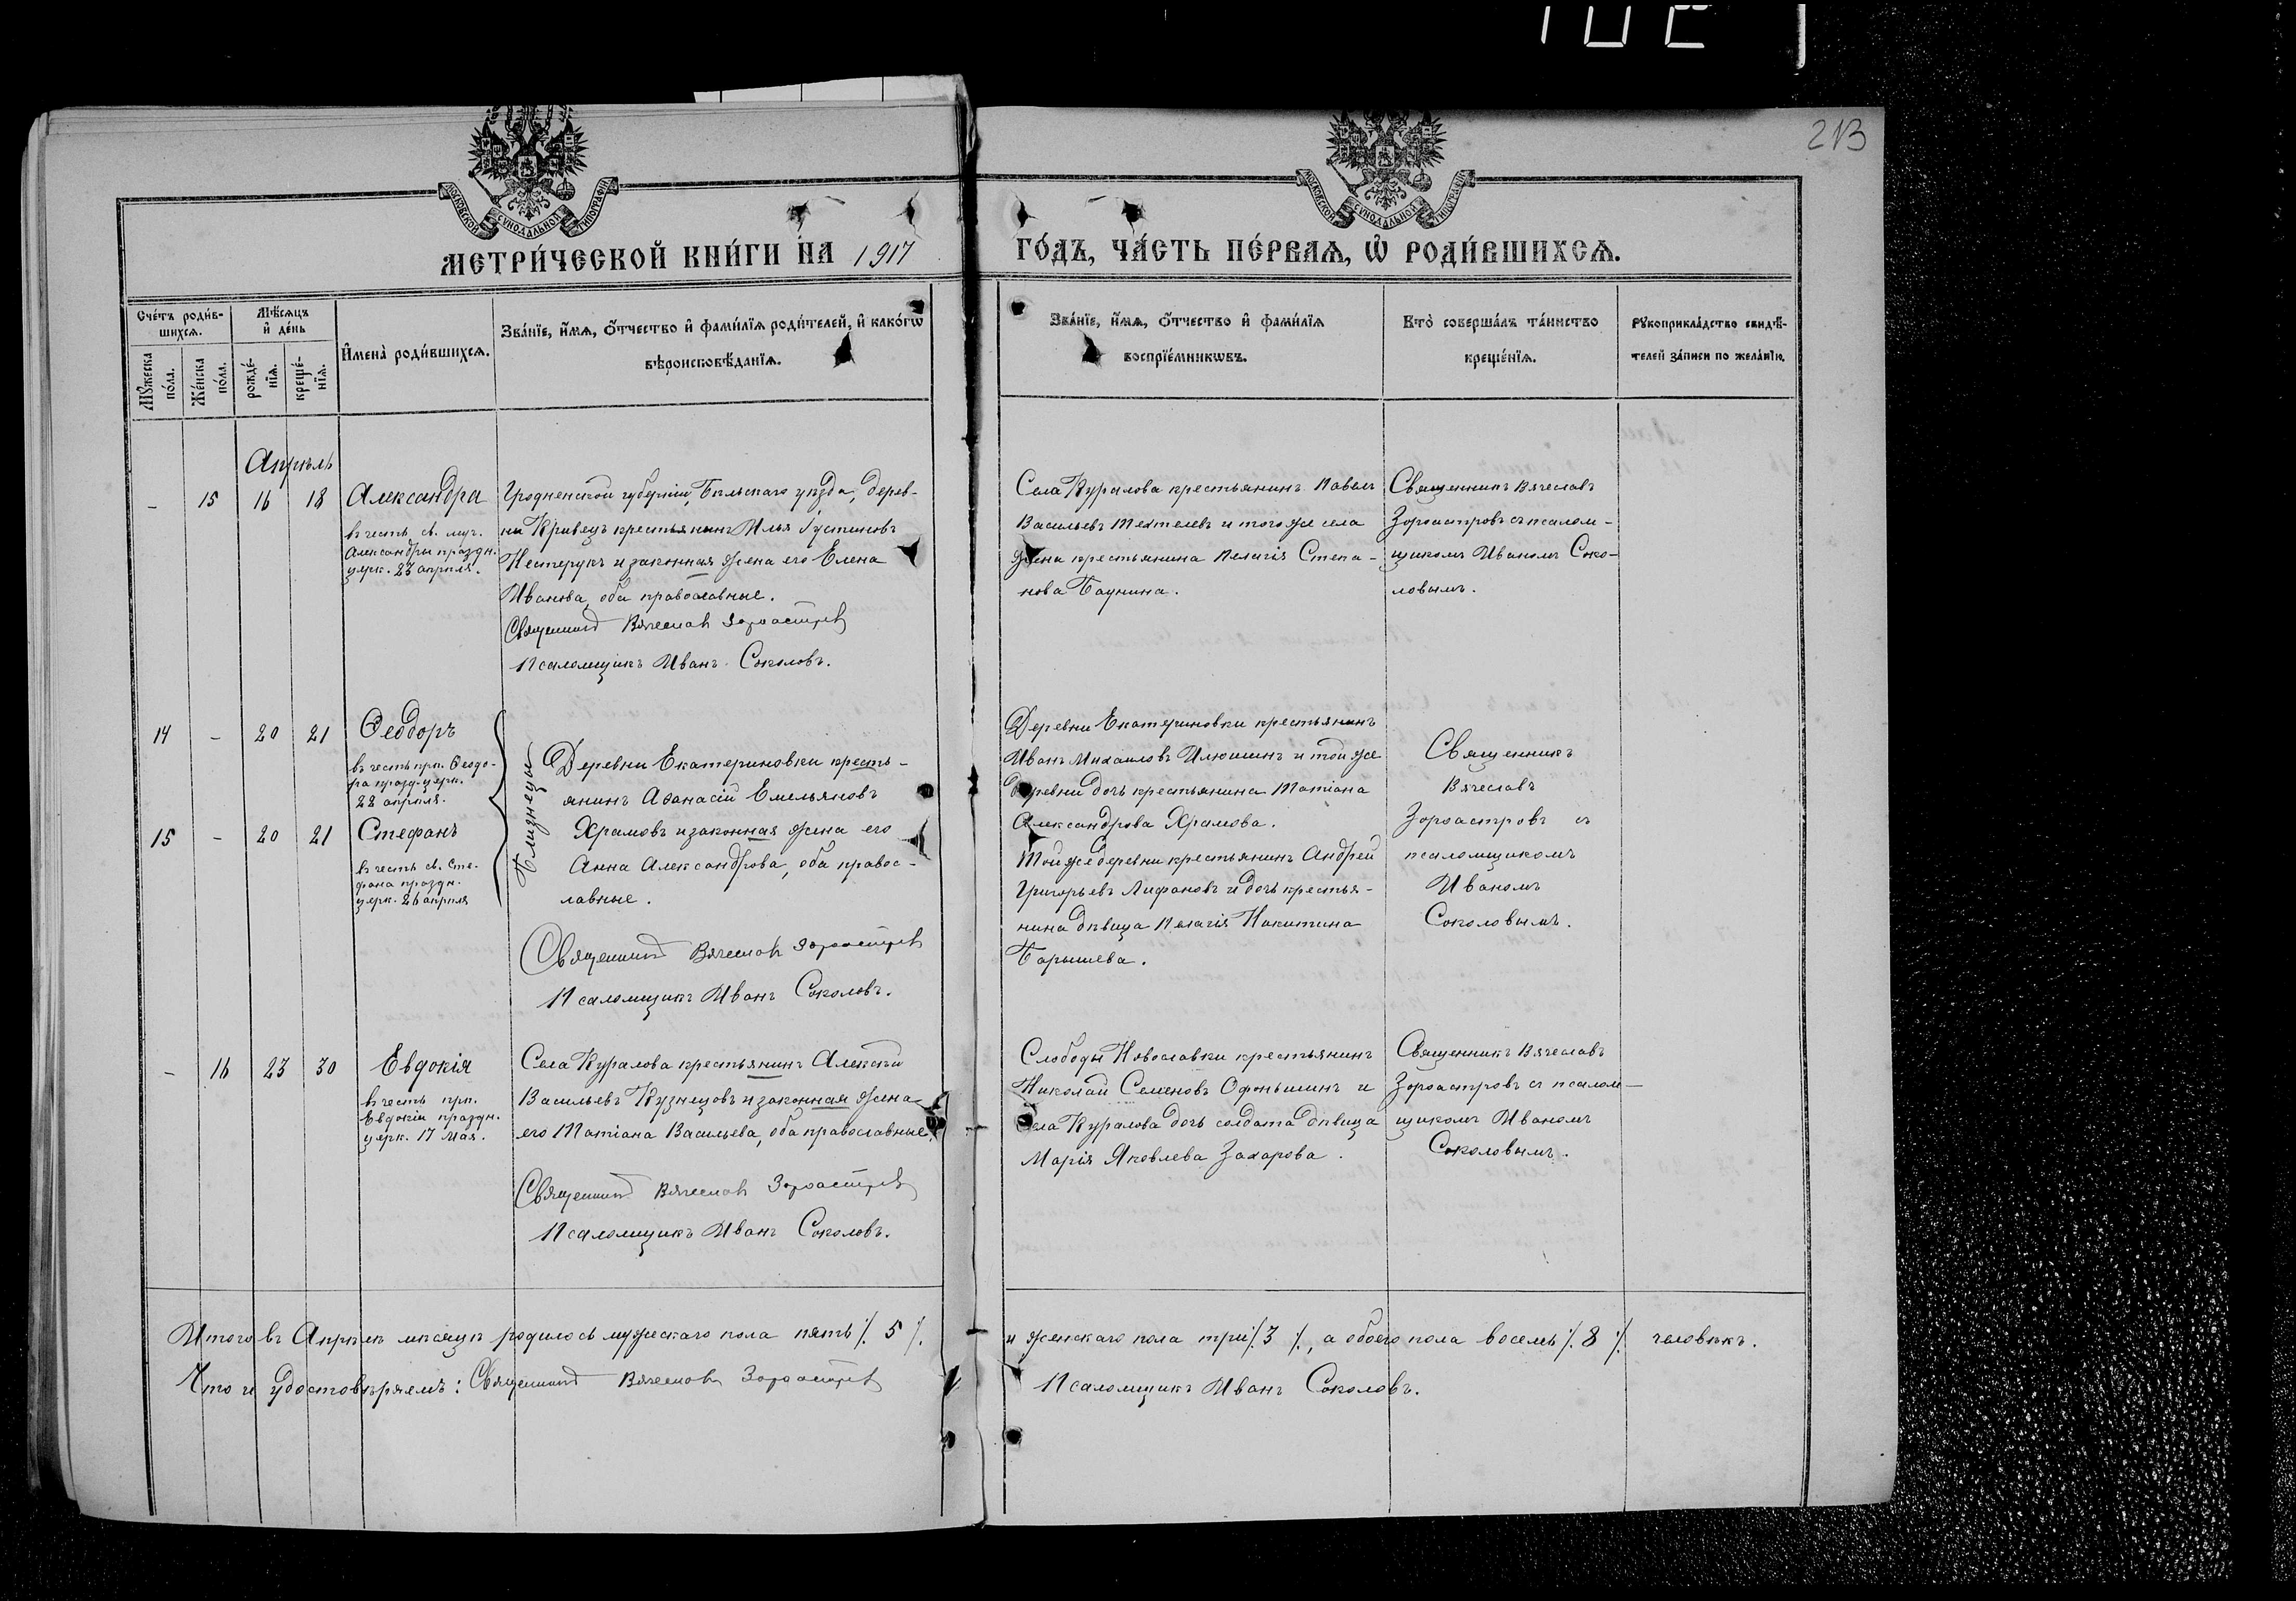 213
МОСКОВСКОЙ СѴНОДАЛЬНОЙ ТИПОГРАФІИ
МОСКОВСКОЙ СѴНОДАЛЬНОЙ ТИПОГРАФІИ
МЕТРИ́ЧЕСКОЙ КНИ́ГИ НА 1917
ГО́ДЪ, ЧА́СТЬ ПЕ́РВАѦ, Ѡ҆ РОДИ́ВШИХСѦ.
Сче́тъ роди́в-
шихсѧ.
Мѣ́сѧцъ
и҆ де́нь
Мꙋ́жеска
по́ла.
Же́нска
по́ла.
рожде́-
нїѧ.
креще́-
нїѧ.
И҆мена̀ роди́вшихсѧ.
Зва́нїе, и҆́мѧ, ѻ҆́тчество и҆ фами́лїѧ роди́телей, и҆ како́гѡ
вѣроисповѣ́данїѧ.
Зва́нїе, и҆́мѧ, ѻ҆́тчество и҆ фами́лїѧ
воспрїе́мникѡвъ.
Кто̀ соверша́лъ та́инство
креще́нїѧ.
Рꙋкоприкла́дство свидѣ́-
телей за́писи по жела́нїю.
Апрѣль
- 15 16 18 Александра
въ честь св. муч.
Александры праздн.
церк. 23 апрѣля.
Гродненской губерніи, Бѣльскаго уѣзда, дерев-
ни Кривецъ крестьянинъ Илья Іустиновъ
Нестерукъ и законная жена его Елена
Иванова, оба православные.
Священникъ Вячеславъ Зороастровъ
Псаломщикъ Иванъ Соколовъ.
Села Куралова крестьянинъ Павелъ
Васильевъ Тектелевъ и того же села
жена крестьянина Пелагія Степа-
нова Баунина.
Священникъ Вячеславъ
Зороастровъ съ псалом-
щикомъ Иваномъ Соко-
ловымъ.
14 - 20 21 Ѳеодоръ
въ честь прп. Ѳеодо-
ра празд. церк.
22 апрѣля.
15 - 20 21 Стефанъ
въ честь св. Сте-
фана праздн.
церк. 26 апрѣля
Близнецы
Деревни Екатериновки кресть-
янинъ Аѳанасій Емельяновъ
Храмовъ и законная жена его
Анна Александрова, оба правос-
лавные.
Священникъ Вячеславъ Зороастровъ
Псаломщикъ Иванъ Соколовъ.
Деревни Екатериновки крестьянинъ
Иванъ Михаиловъ Илюшинъ и той же
деревни дочь крестьянина Татіана
Александрова Храмова.
Той же деревни крестьянинъ Андрей
Григорьевъ Лифановъ и дочь крестья-
нина дѣвица Пелагія Никитина
Барышева.
Священникъ
Вячеславъ
Зороастровъ съ
псаломщикомъ
Иваномъ
Соколовымъ.
- 16 23 30 Евдокія
въ честь прп.
Евдокіи праздн.
церк. 17 мая.
Села Куралова крестьянинъ Алексѣй
Васильевъ Кузнецовъ и законная жена
его Татіана Васильева, оба православные.
Священникъ Вячеславъ Зороастровъ
Псаломщикъ Иванъ Соколовъ.
Слободы Новославки крестьянинъ
Николай Семеновъ Офонышинъ и
села Куралова дочь солдата дѣвица
Марія Яковлева Захарова.
Священникъ Вячеславъ
Зороастровъ съ псалом-
щикомъ Иваномъ
Соколовымъ.
Итого въ Апрѣлѣ мѣсяцѣ родилось мужескаго пола пять ⁒ 5 ⁒ и женскаго пола три ⁒ 3 ⁒, а обоего пола восемь ⁒ 8 ⁒ человѣкъ.
Что и удостовѣряемъ: Священникъ Вячеславъ Зороастровъ Псаломщикъ Иванъ Соколовъ.